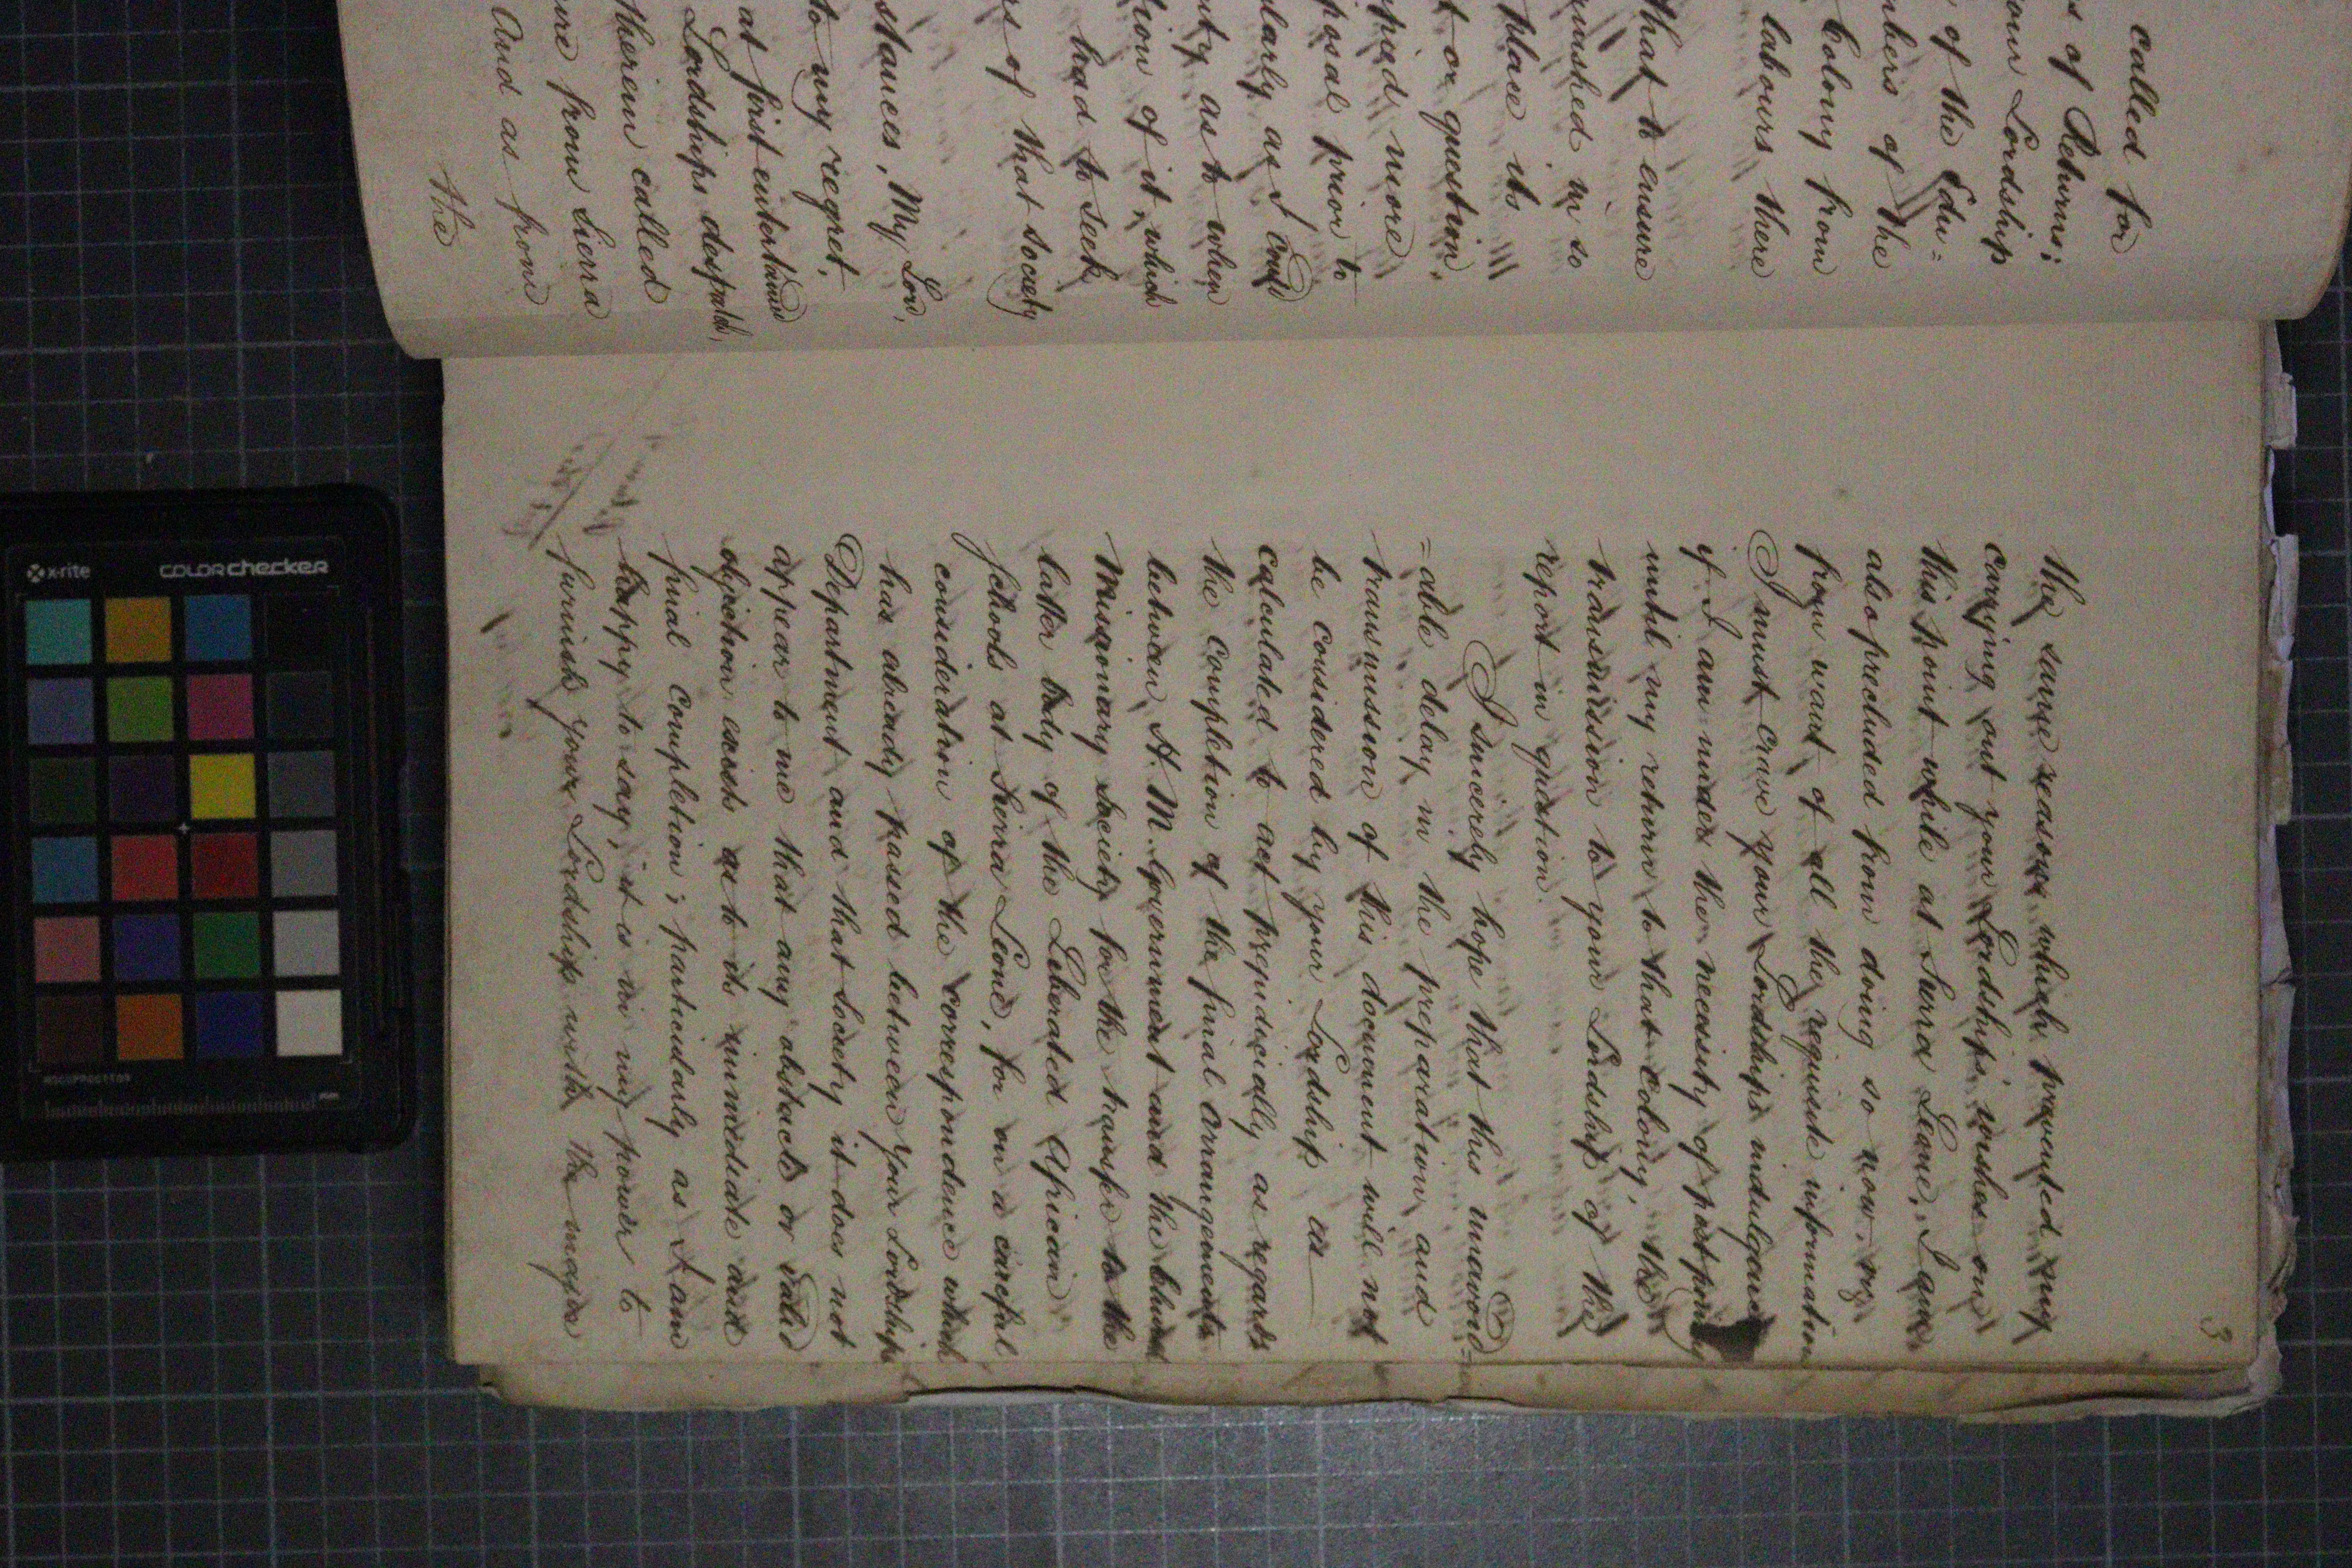 called for
s of Returns;
our Lordship
of the Edu=
nbers of the
Colony from
labours there
that to ensure
quished in so
place its
t or question
pied more
posal prior to
larly as I could
nty as to when
tion of it, which
had to seek
rs of that society
stances, My Lord,
to my regret,
at first entertained
Lordships despatch,
therein called
one from Sierra
And as from
the
3
the same reasons which prevented my
carrying out your Lordship's wishes on
this point while at Sierra Leone, I am
also precluded from doing so now, viz
from want of all the requisite information
I must crave your Lordships indulgence
if I am under the necessity of postponing
until my return to that Colony, the
transmission to your Lordship of the
report in question.
I sincerely hope that this unavoid=
=able delay in the preparation and
transmission of this document will not
be considered by your Lordship as
calculated to act prejudicially as regards
the completion of the final Arrangements
between H. M. Government and the Church
Missionary Society for the transfer to the
latter body of the Liberated African
schools at Sierra Leone, for on a careful
consideration of the correspondence which
has already passed between your Lordship's
Department and that Society it does not
appear to me that any obstacle or valid
objection exists as to its immediate and
final completion; particularly as I am
happy to say, it is in my power to
furnish your Lordship with the major
x-rite
colorchecker